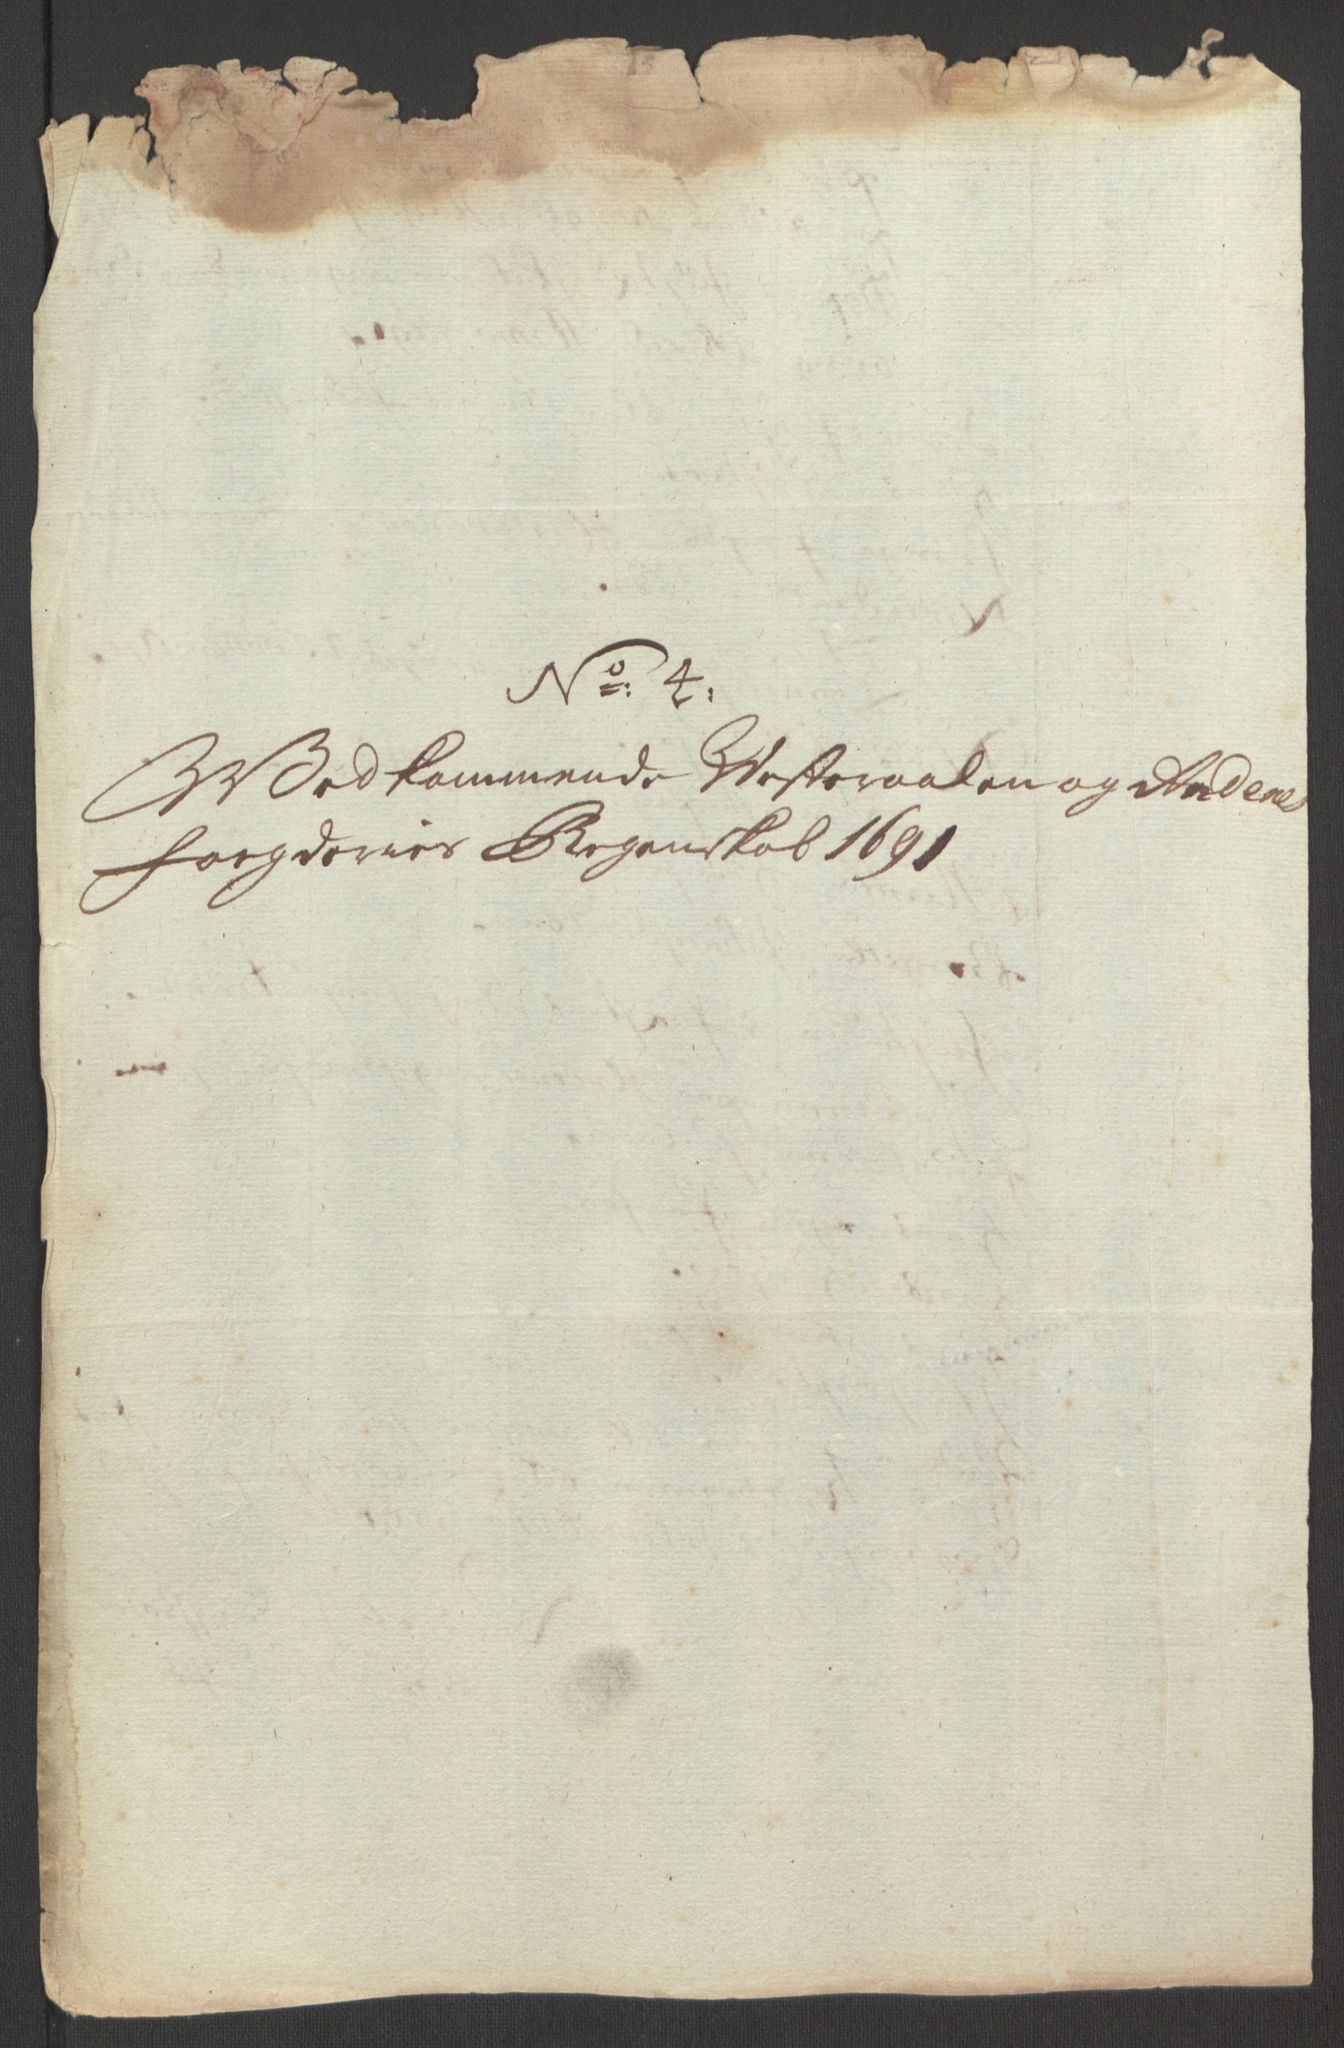 No: 4.
Wedkommende Westeraalen og Andenes
foegderies Regenskab 1691